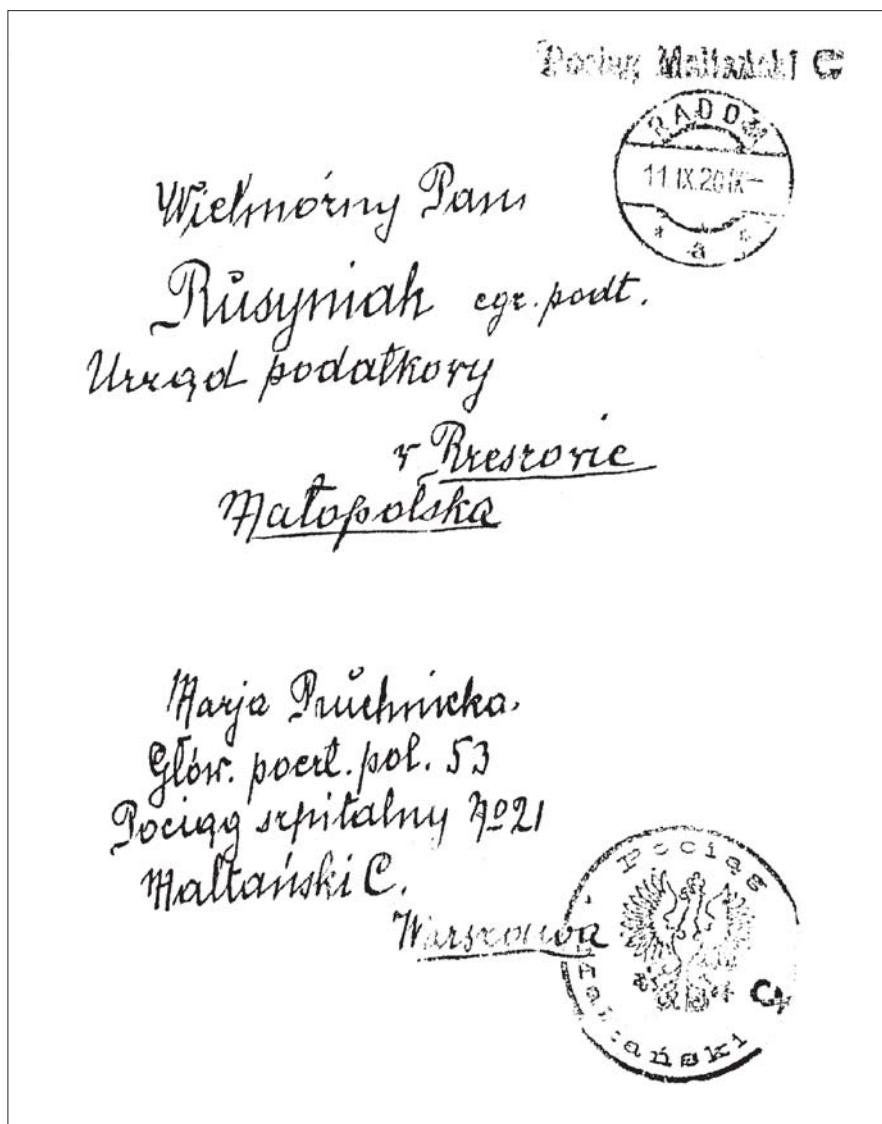 Pociąg Maltański C
RADOM
11 IX.20 IX
* a *
Wielmożny Pan
Rusyniak egz. podt.
Urząd podatkowy
w Rzeszowie
Małopolska
Marja Pruchnicka.
Głów. poczt. pol. 53
Pociąg szpitalny No 21
Maltański C.
Warszawa
Pociąg
Maltański
C